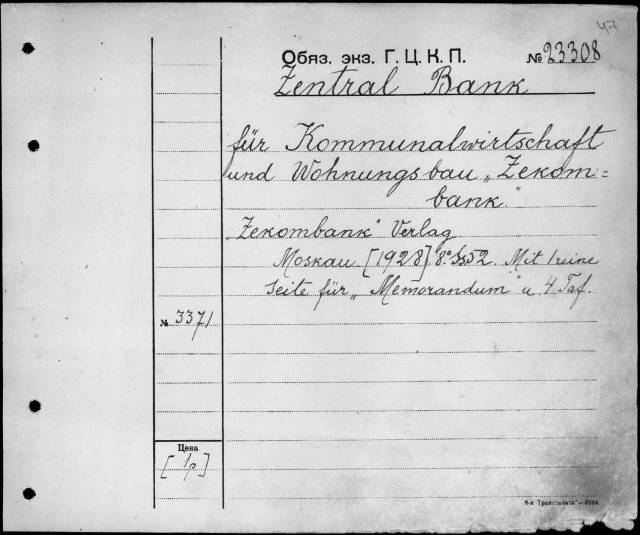 47
Обяз. экз. Г. Ц. К. П. № 23308
Zentral Bank
für Kommunalwirtschaft
und Wohnungsbau „Zekom=
bank."
„Zekombank" Verlag
Moskau. [1928] 8° Ss 52. Mit 1 reine
Seite für „Memorandum" u 4 Taf.
№ 3371
Цена
[1р]